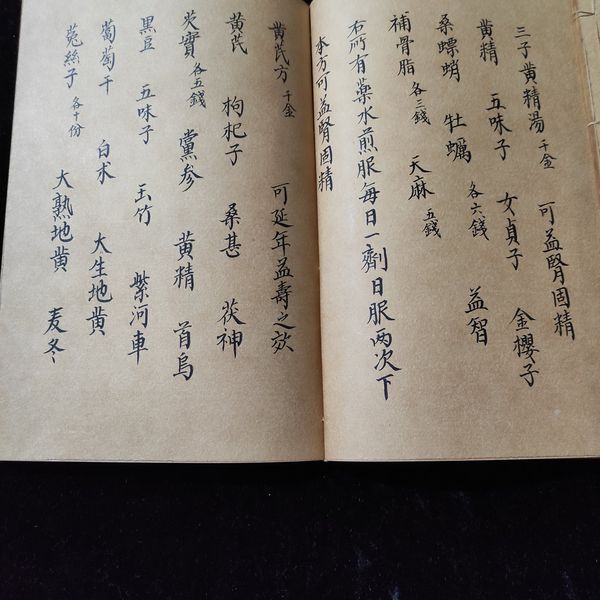 三子黄精湯 千金 可益腎固精
黄精 五味子 女貞子 金櫻子
桑螵蛸 牡蠣 各六錢 益智
補骨脂 各三錢 天麻 五錢
右所有藥水煎服每日一劑日服两次下
本方可益腎固精
黄芪方 千金 可延年益壽之效
黄芪 枸杞子 桑甚 茯神
芡實 各五錢 黨参 黄精 首烏
黑豆 五味子 玉竹 紫河車
葡萄干 白术 大生地黄
菟絲子 各十份 大熟地黄 麦冬